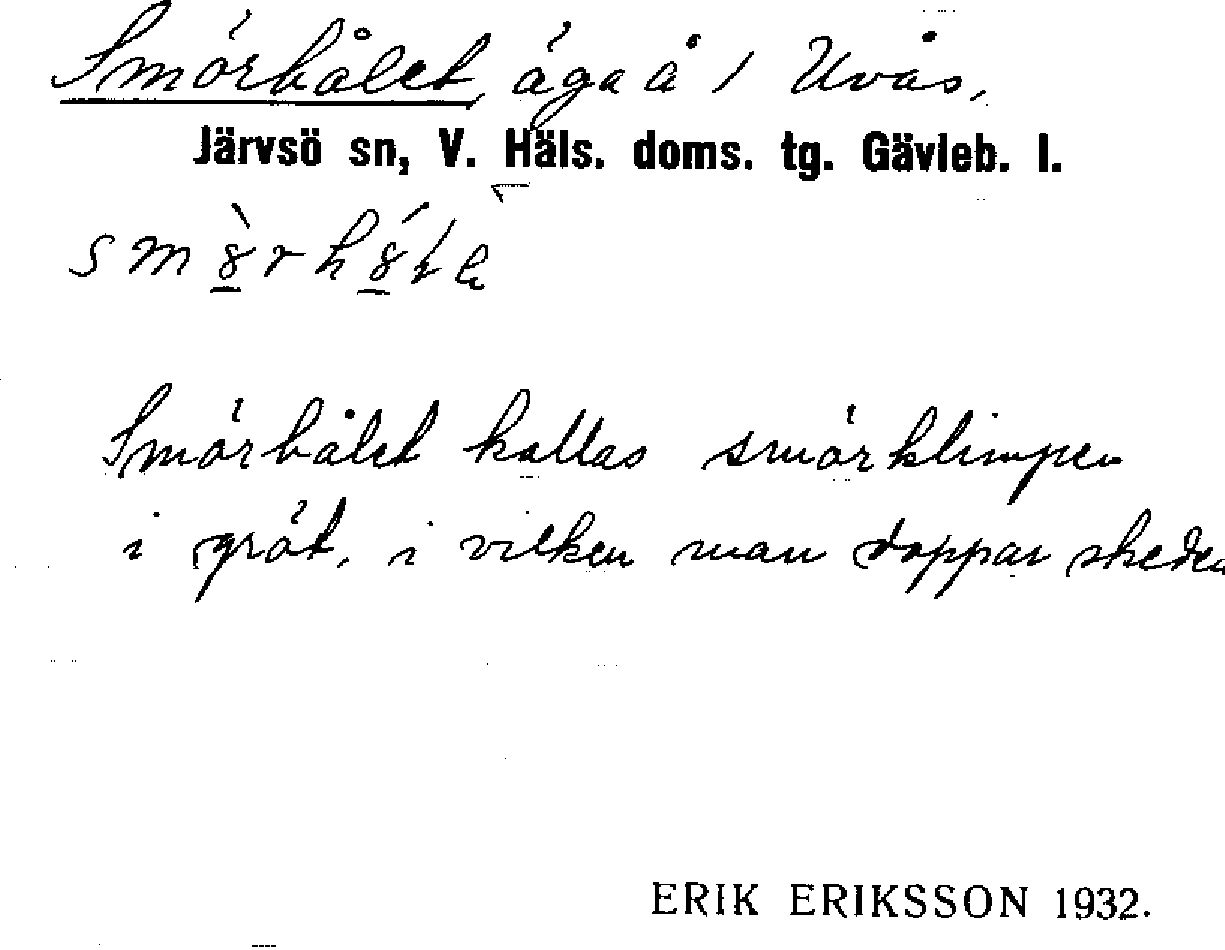 Smörhålet, äga å 1 Uvås,
Järvsö sn, V. Häls. doms. tg. Gävleb. l.
Smörhålet kallas smörklimpen
i gröt, i vilken man doppar skeden
ERIK ERIKSSON 1932.